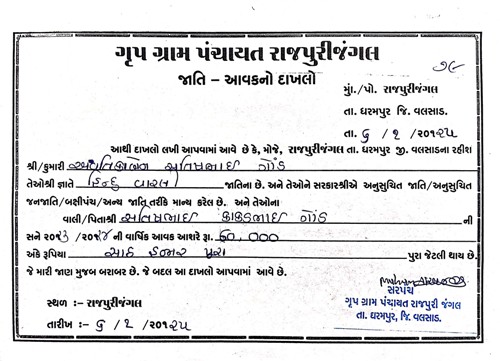 ગૃપ ગ્રામ પંચાયત રાજપુરીજંગલ
જાતિ – આવકનો દાખલો
૭૯
મું./પો. રાજપુરીજંગલ
તા. ધરમપુર જિ. વલસાડ.
તા. ૬ / ૧ / ૨૦૧૨૫
આથી દાખલો લખી આપવામાં આવે છે કે, મોજે, રાજપુરીજંગલ તા. ધરમપુર જી. વલસાડના રહીશ
શ્રી/કુમારી સતિષભાઇ ગોંડ
તેઓશ્રી જ્ઞાતે હિન્દુ વારલી જાતિના છે. અને તેઓને સરકારશ્રીએ અનુસુચિત જાતિ/અનુસુચિત
જનજાતિ/બક્ષીપંચ/અન્ય જાતિ તરીકે માન્ય કરેલ છે. અને તેઓના
વાલી/પિતાશ્રી સતિષભાઇ કાકડભાઇ ગોંડ ની
સને ૨૦૧૩ /૨૦૧૪ ની વાર્ષિક આવક આશરે રૂા. ૬૦,૦૦૦
અંકે રૂપિયા સાઠ હજાર પુરા પુરા જેટલી થાય છે.
જે મારી જાણ મુજબ બરાબર છે. જે બદલ આ દાખલો આપવામાં આવે છે.
સરપંચ
ગૃપ ગ્રામ પંચાયત રાજપુરી જંગલ
તા. ધરમપુર, જિ. વલસાડ.
સ્થળ :– રાજપુરીજંગલ
તારીખ :– ૬ / ૧ / ૨૦૧૨૫